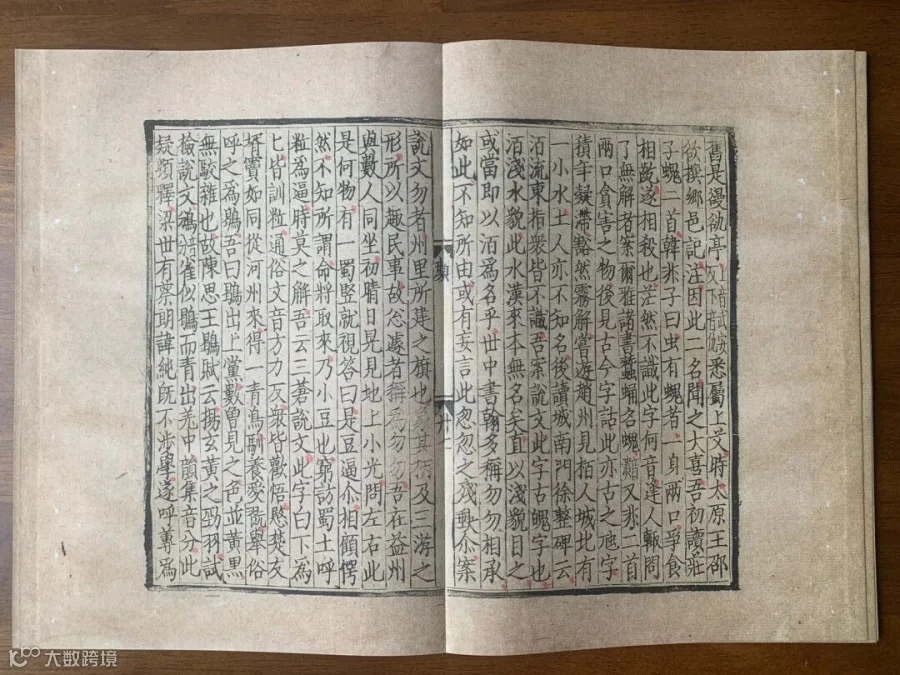 舊是亭悉屬上艾時太原王邵
欲撰鄉邑記注因此二名聞之大喜吾初讀莊
子螝二首韓非子曰虫有螝者一身兩口爭食
相齕遂相殺也茫然不識此字何音逢人輙問
了無解者案爾雅諸書蠶蛹名螝又非二首
兩口貪害之物後見古今字詁此亦古之虺字
積年凝滯豁然霧解嘗遊趙州見柏人城北有
一小水土人亦不知名後讀城南門徐整碑云
洦流東指衆皆不識吾案說文此字古魄字也
洦淺水貌此水漢來本無名矣直以淺貌目之
或當即以洦爲名乎世中書翰多稱勿勿相承
如此不知所由或有妄言此忽忽之殘缺尒案
說文勿者州里所建之旗也象其柄及三斿之
形所以趣民事故怱遽者稱爲勿勿吾在益州
與數人同坐初晴日晃見地上小光問左右此
是何物有一蜀竪就視答曰是豆逼尒相顧愕
然不知所謂命將取來乃小豆也窮訪蜀土呼
粒爲逼時莫之解吾云三蒼說文此字白下爲
匕皆訓粒通俗文音方力反衆皆歡悟愍楚友
壻竇如同從河州來得一青鳥馴養愛翫舉俗
呼之爲鶡吾曰鶡出上黨數曾見之色並黃黑
無駮雜也故陳思王鶡賦云揚玄黃之勁羽試
檢說文鳻雀似鶡而青出羌中韻集音分此
疑頓釋梁世有蔡朗諱純既不涉學遂呼蓴爲
大数跨境